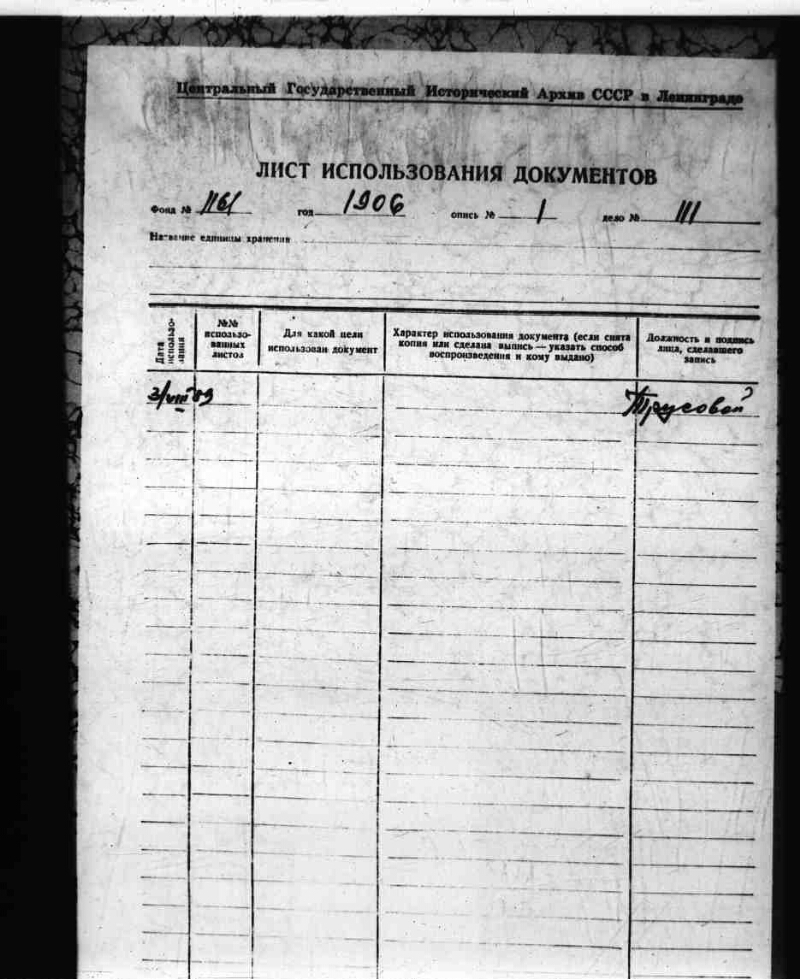 Центральный Государственный Исторический Архив СССР в Ленинграде
ЛИСТ ИСПОЛЬЗОВАНИЯ ДОКУМЕНТОВ
Фонд № 1161 год 1906 опись № 1 дело № 111
Название единицы хранения
Дата использования
№№ использованных листов
Для какой цели использован документ
Характер использования документа (если снята копия или сделана выпись — указать способ воспроизведения и кому выдано)
Должность и подпись лица, сделавшего запись
3/VIII 89 Трусовой